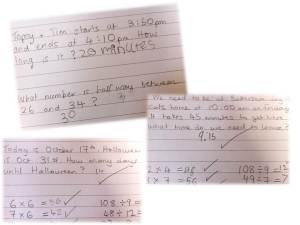 Topsy + Tim starts at 3:50pm
and ends at 4:10pm How
long is it? 20 minutes
What number is half way between
26 and 34?
30
We need to be at
home at 10:00am on Friday
It takes 45 minutes to get
what time do we need to leave?
9.15
108÷9=12
7=56
49÷7=7
Today is October 17th. Halloween
is Oct 31st. How many days
until Halloween? 14
6×6=36
108÷9=
7×6=42
48÷12=